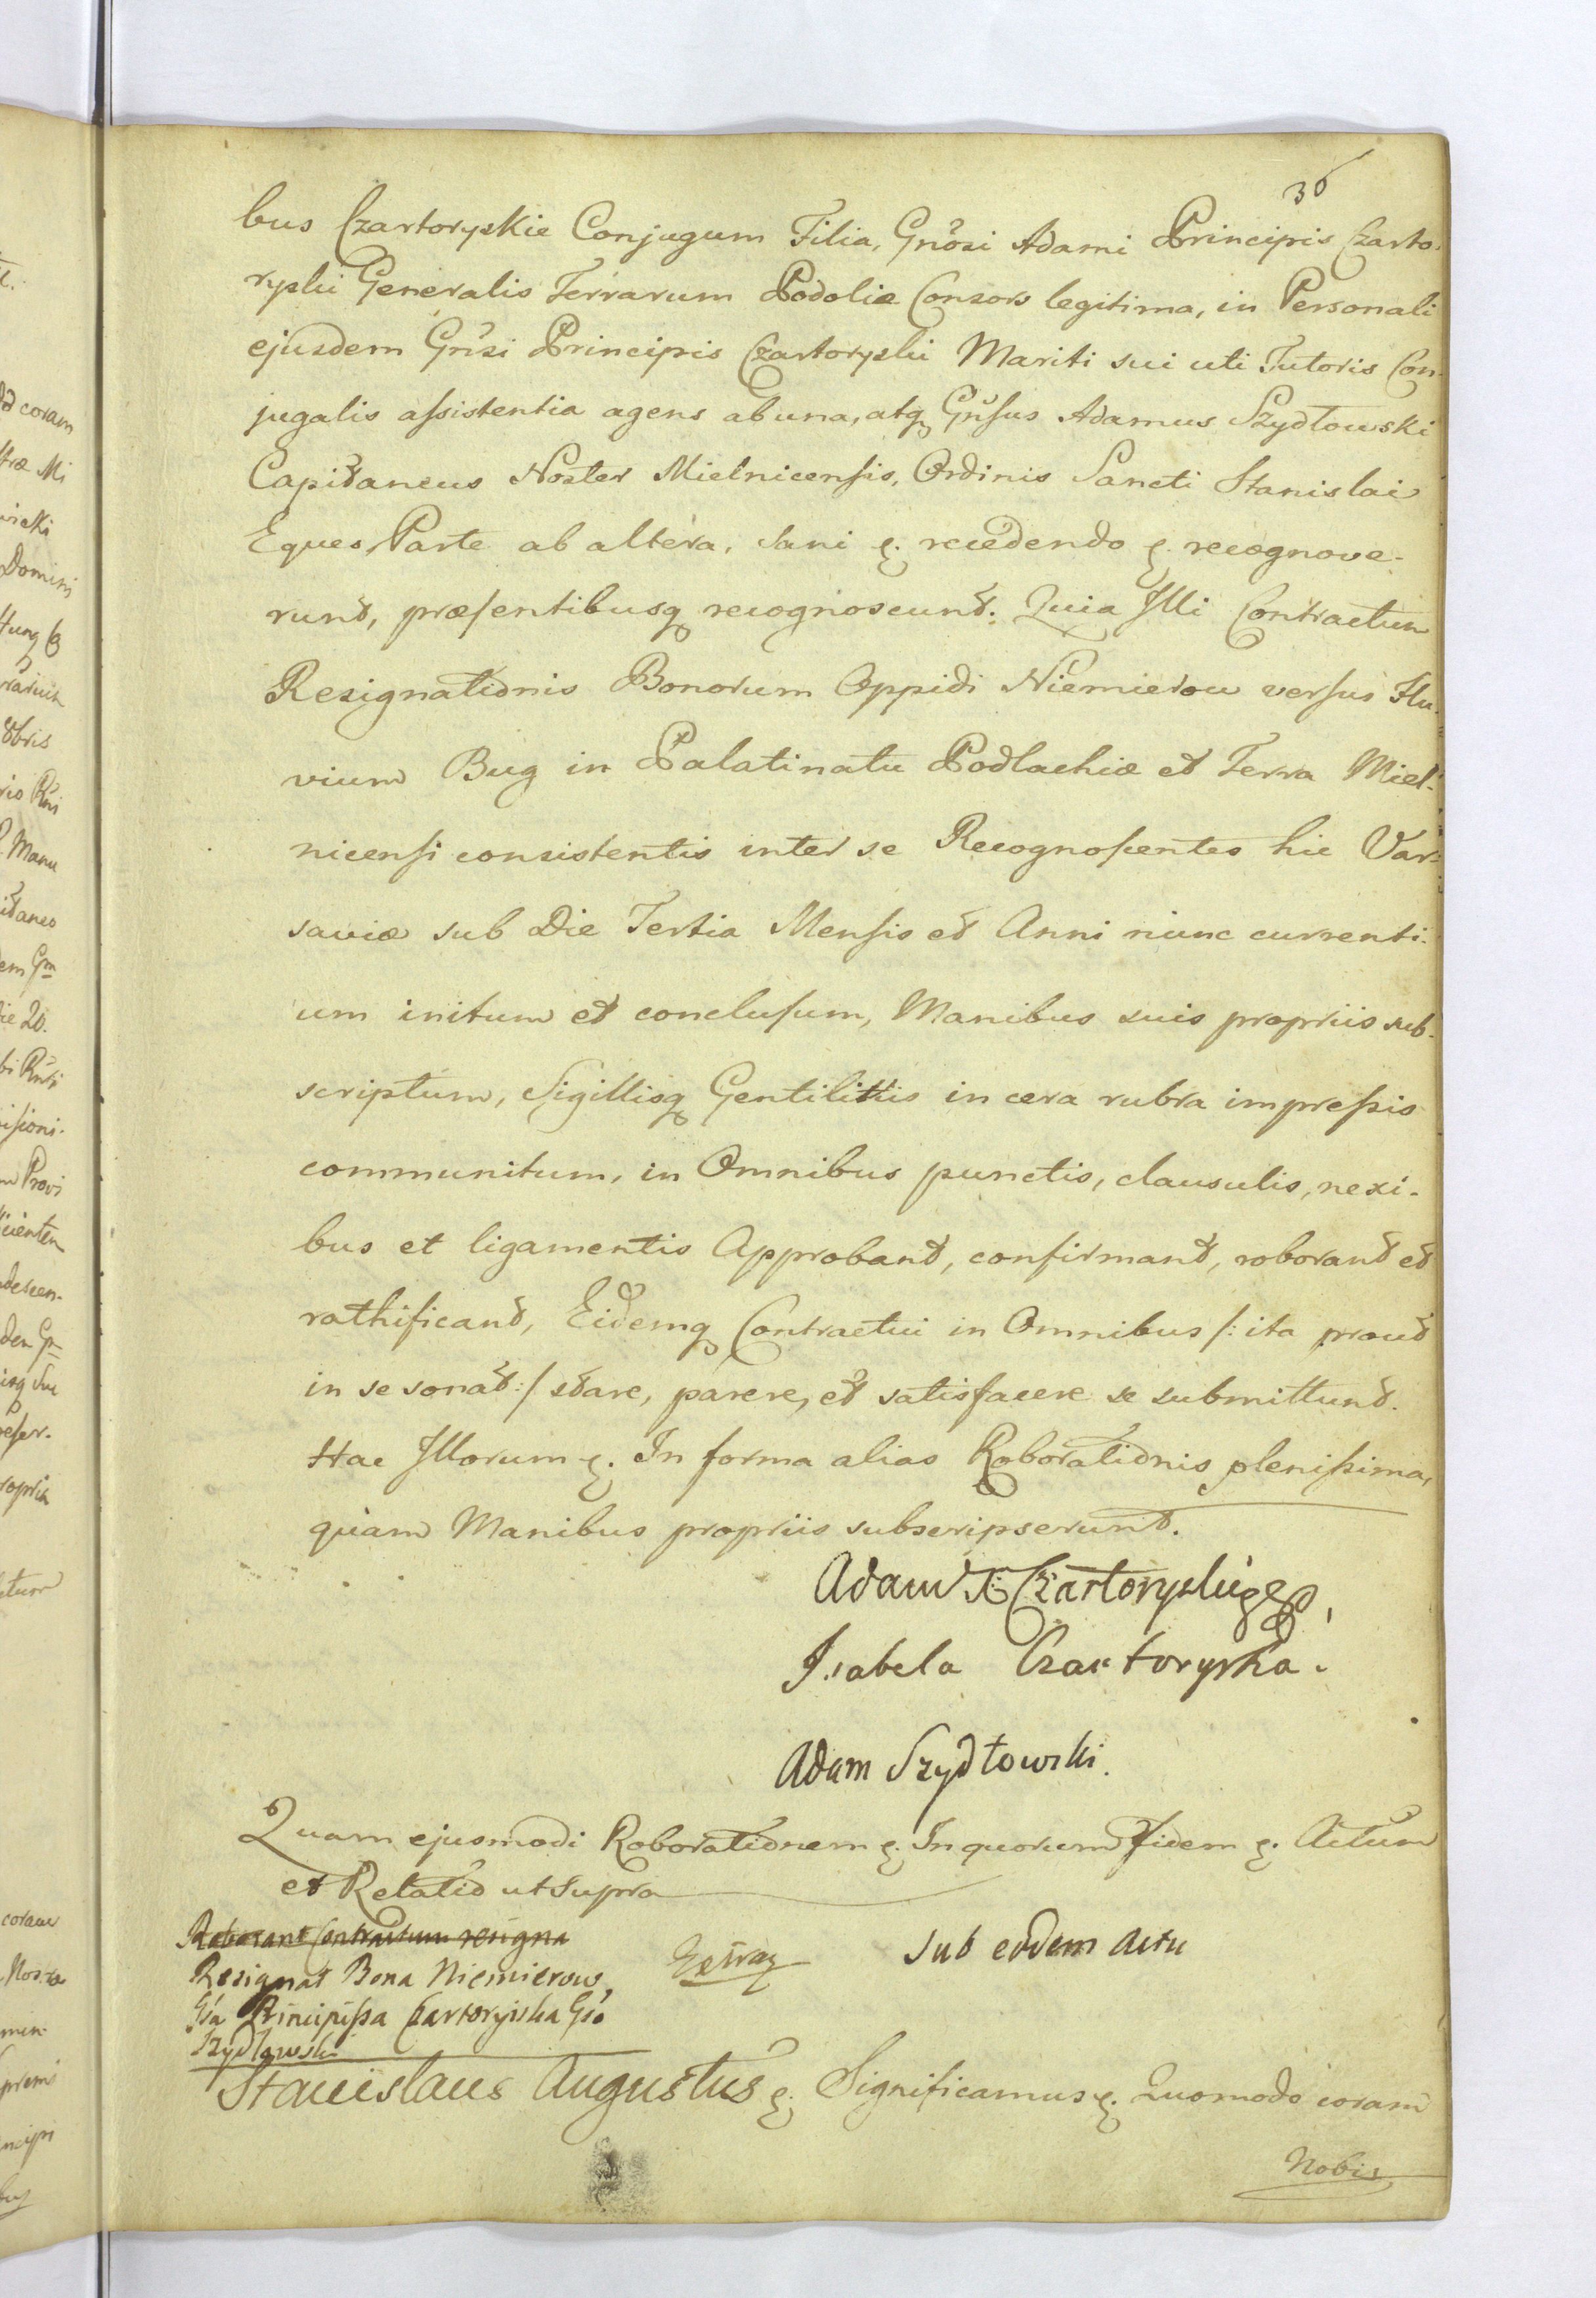 36
bus Czartoryskie Conjugum Filia, Gnősi Adami Principis Czarto-
ryski Generalis Terrarum Podoliæ Consors legitima, in Personali
ejusdem Gnsi Principis Czartoryski Mariti sui uti Tutoris Con-
jugalis assistentia agens ab una, atq Gnsus Adamus Szydłowski
Capitaneus Noster Mielnicensis, Ordinis Sancti Stanislai
Eques, Parte ab altera, sani &. recedendo &. recognove-
runt, præsentibusq recognoscunt: Quia Illi Contractum
Resignationis Bonorum Oppidi Niemierow versus Flu-
vium Bug in Palatinatu Podlachiæ et Terra Miel-
nicensi consistentis inter se Recognoscentes hic Var-
saviæ sub Die Tertia Mensis et Anni nunc currenti-
um initum et conclusum, Manibus suis propriis sub-
scriptum, Sigillisq Gentilitiis in cera rubra impressis
communitum, in Omnibus punctis, clausulis, nexi-
bus et ligamentis Approbant, confirmant, roborant et
rathificant, Eidemq Contractui in Omnibus /: ita prout
in se sonat :/ stare, parere, et satisfacere se submittunt.
Hac Illorum &. In forma alias Roborationis plenissima,
quam Manibus propriis subscripserunt.
Adam X Czartoryski
Isabela Czartoryska.
Adam Szydłowski.
Quam ejusmodi Roborationem &. In quorum Fidem &. Actum
et Relatio ut Supra
Roborant Contractum resigna
Resignat Bona Niemierow,
Gsa Principissa Czartoryska Gso
Szydłowski
Sub eodem Actu
Stanislaus Augustus &. Significamus &. Quomodo coram
Nobis